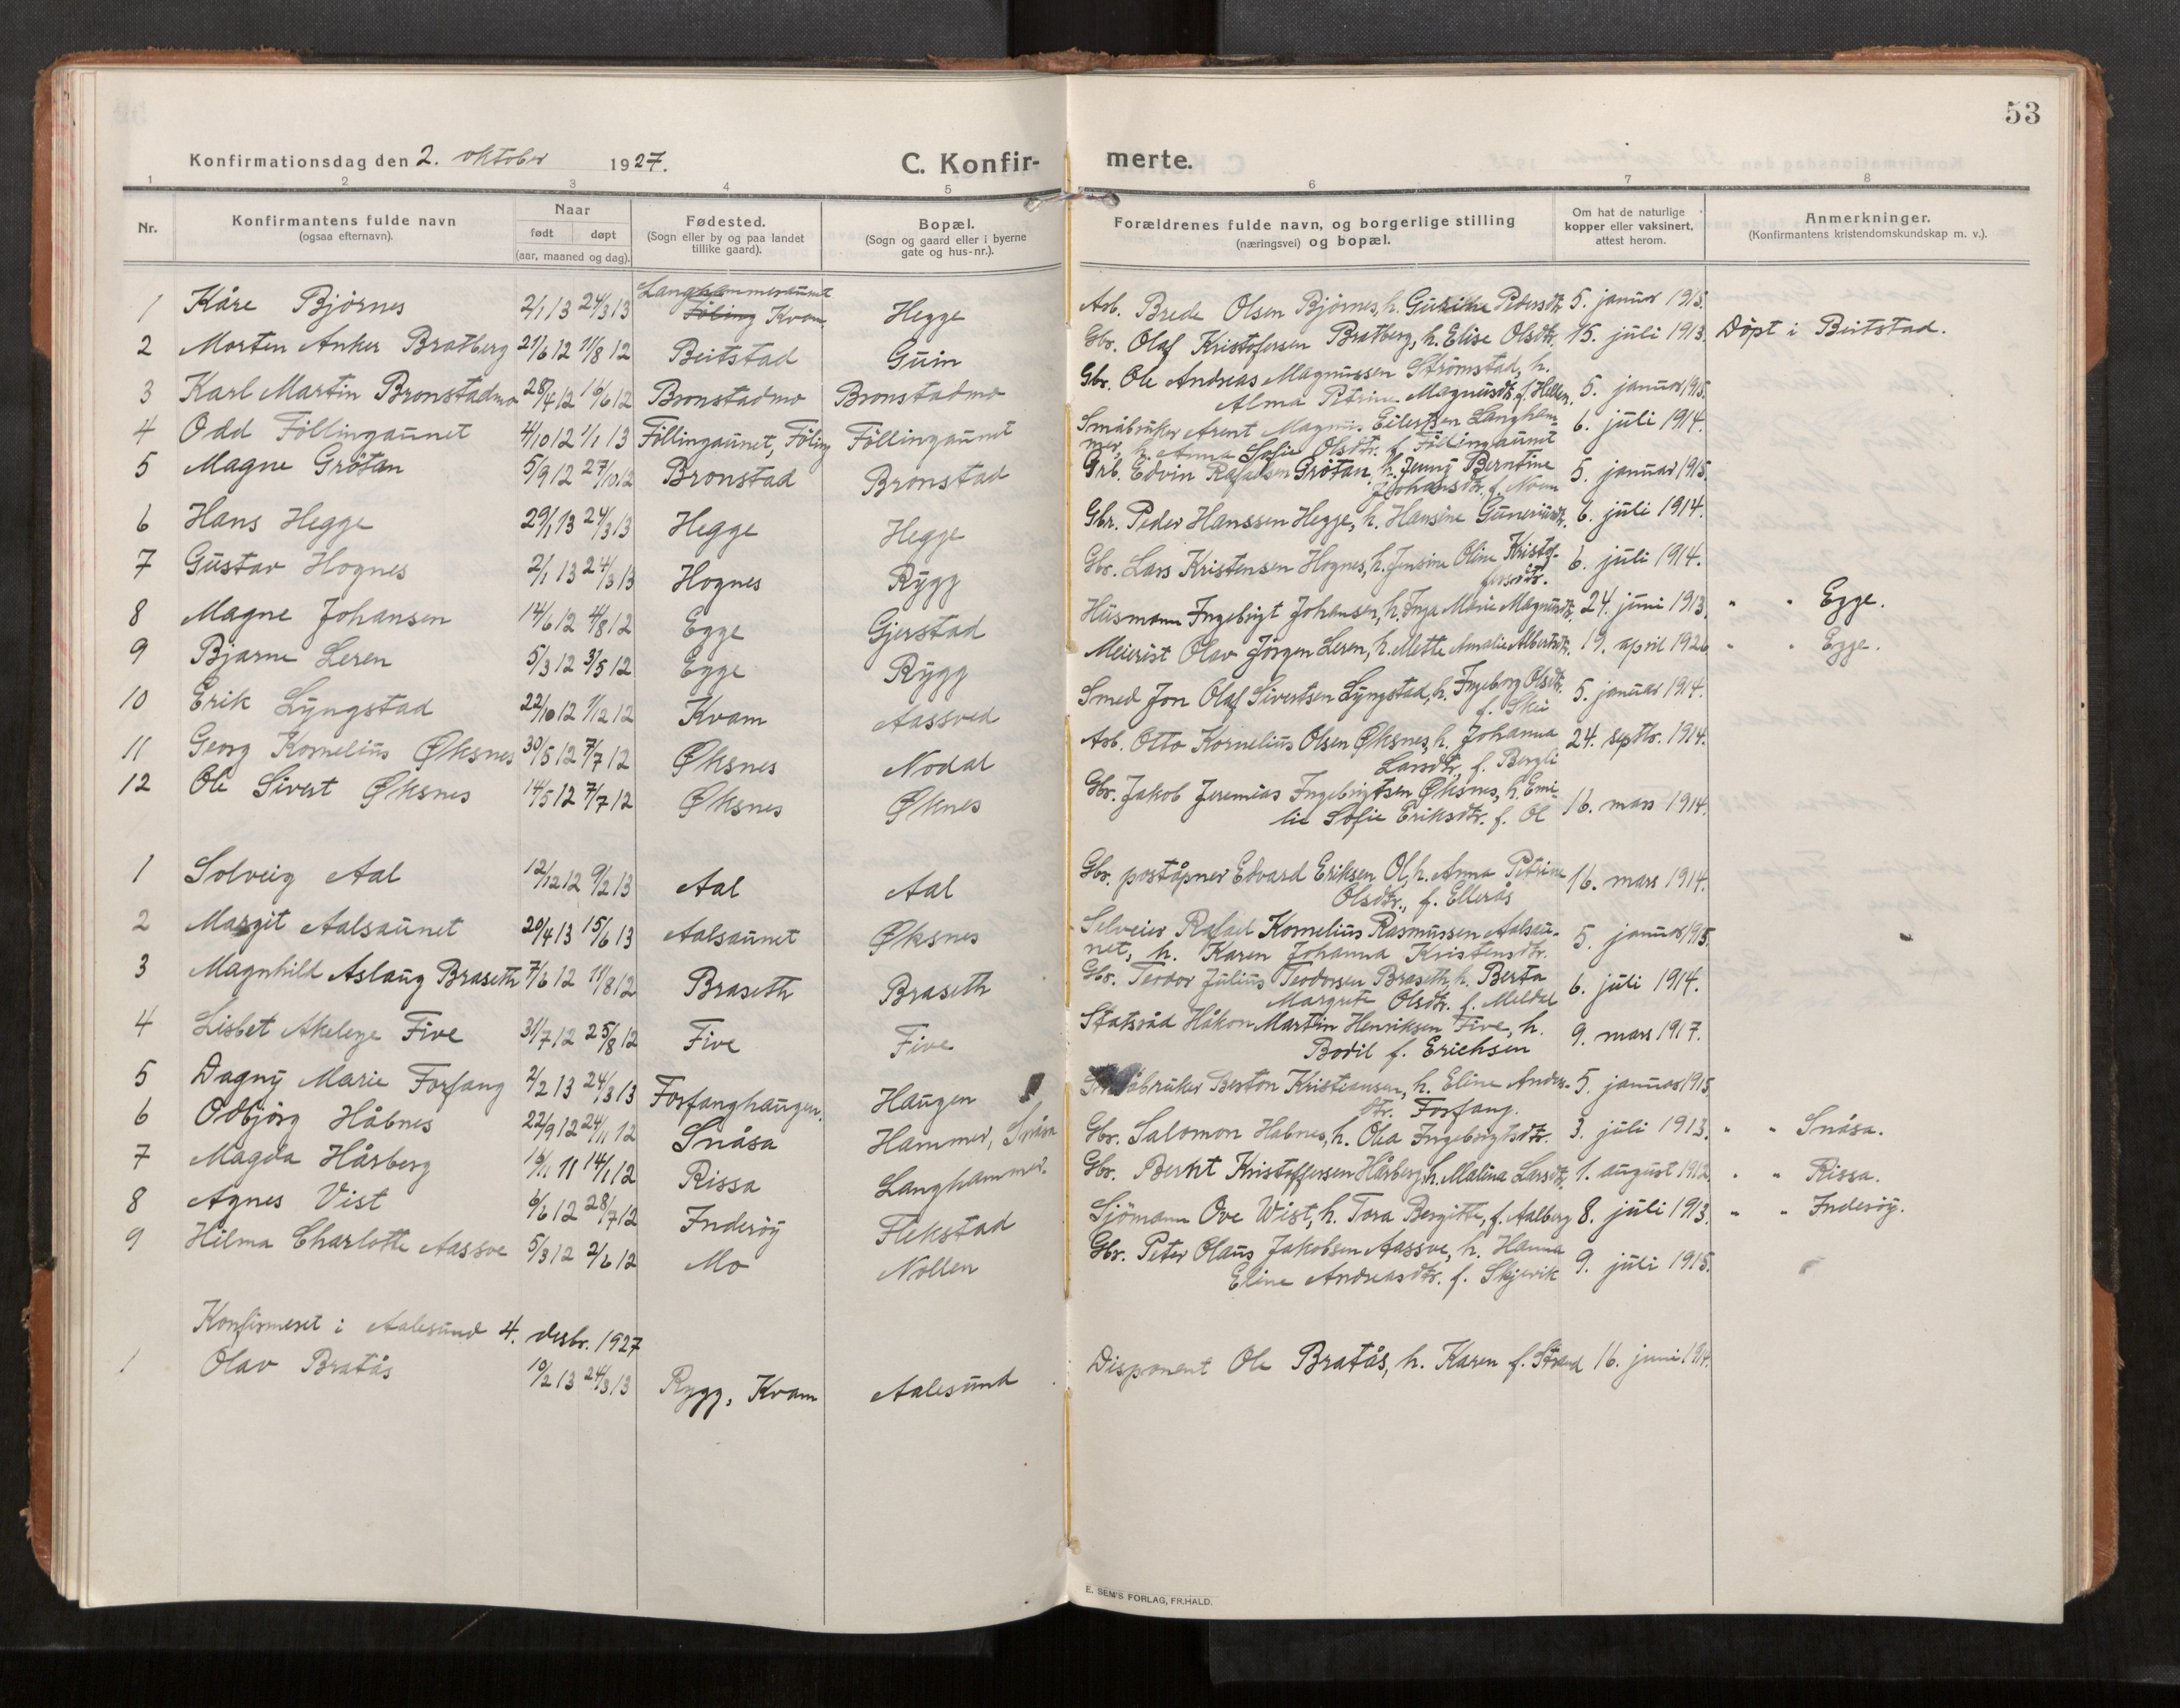 53
Konfirmationsdag den 2. oktober 1927.
C. Konfirmerte.
1 2 3 4 5 6 7 8
Nr.
Konfirmantens fulde navn
(ogsaa efternavn).
Naar
født døpt
(aar, maaned og dag).
Fødested.
(Sogn eller by og paa landet
tillike gaard).
Bopæl.
(Sogn og gaard eller i byerne
gate og hus-nr.).
Forældrenes fulde navn, og borgerlige stilling
(næringsvei) og bopæl.
Om hat de naturlige
kopper eller vaksinert,
attest herom.
Anmerkninger.
(Konfirmantens kristendomskundskap m. v.).
Langhammeraunet
1 Kåre Bjørnes 2/1 13 24/3 13 Föling Kvam Hegge Arb. Brede Olsen Bjørnes, h. Gurine Pedersdtr. 5. januar 1915.
2 Morten Anker Bratberg 21/6 12 11/8 12 Beitstad Guin Gbr. Olaf Kristofersen Bratberg, h. Elise Olsdtr. 15. juli 1913. Döpt i Beitstad.
3 Karl Martin Bronstadmo 28/4 12 16/6 12 Bronstadmo Bronstadmo Gbr. Ole Andreas Magnussen Strömstad, h.
Alma Petrine Magnusdtr. f. Hellem. 5. januar 1915.
4 Odd Föllingaunet 4/10 12 1/1 13 Föllingaunet, Föling Föllingaunet Småbruker Arent Magnus Eilertsen Langham-
mer, h. Anna Sofie Olsdtr. f. Föllingaunet 6. juli 1914.
5 Magne Grötan 5/9 12 27/10 12 Bronstad Bronstad Grb. Edvin Rafaelsen Grötan, h. Jenny Berntine
Johansdtr. f. Noem 5. januar 1915.
6 Hans Hegge 29/1 13 24/3 13 Hegge Hegge Gbr. Peder Hanssen Hegge, h. Hansine Guneriusdtr. 6. juli 1914.
7 Gustav Hognes 2/1 13 24/3 13 Hognes Rygg Gbr. Lars Kristensen Hognes, h. Jensine Oline Kristof-
fersdtr. 6. juli 1914.
8 Magne Johansen 14/6 12 4/8 12 Egge Gjerstad Husmann Ingebrigt Johansen, h. Inga Marie Magnusdtr. 24. juni 1913. " " Egge.
9 Bjarne Leren 5/3 12 3/5 12 Egge Rygg Meierist Olav Jörgen Leren, h. Mette Amalie Albertsdtr. 19. april 1926 " " Egge.
10 Erik Lyngstad 22/10 12 1/12 12 Kvam Aassved Smed Jon Olaf Sivertsen Lyngstad, h. Ingeborg Olsdtr.
f. Skei 5. januar 1914.
11 Georg Kornelius Øksnes 30/5 12 7/7 12 Øksnes Nodal Arb. Otto Kornelius Olsen Øksnes, h. Johanna
Larsdtr. f. Bergli 24. septbr. 1914.
12 Ole Sivert Øksnes 14/5 12 7/7 12 Øksnes Øknes Gbr. Jakob Jeremias Ingebrigtsen Øksnes, h. Emi-
lie Sofie Eriksdtr. f. Ol 16. mars 1914.
1 Solveig Aal 12/12 12 9/2 13 Aal Aal Gbr. poståpner Edvard Eriksen Ol, h. Anna Petrine
Olsdtr., f. Ellerås 16. mars 1914.
2 Margit Aalsaunet 20/4 13 15/6 13 Aalsaunet Øksnes Selveier Rafael Kornelius Rasmussen Aalsau-
net, h. Karen Johanna Kristensdtr. 5. januar 1915.
3 Magnhild Aslaug Braseth 7/6 12 11/8 12 Braseth Braseth Gbr. Teodor Julius Teodorsen Braseth, h. Berta
Margrete Olsdtr. f. Meldal 6. juli 1914.
4 Lisbet Akeleye Five 31/7 12 25/8 12 Five Five Statsråd Håkon Martin Henriksen Five, h.
Bodil f. Erichsen 9. mars 1917.
5 Dagny Marie Forfang 2/2 13 24/3 13 Forfanghaugen. Haugen Småbruker Berton Kristiansen, h. Eline Anders-
dtr. Forfang. 5. januar 1915.
6 Odbjörg Håbnes 22/9 12 24/11 12 Snåsa Hammer, Snåsa Gbr. Salomon Habnes, h. Olea Ingebrigtsdtr. 3. juli 1913. " " Snåsa.
7 Magda Hårberg 16/11 11 14/1 12 Rissa Langhammer. Gbr. Bernt Kristoffersen Hårberg, h. Malina Larsdtr. 1. august 1912. " " Rissa.
8 Agnes Vist 6/6 12 28/7 12 Inderöy Flekstad Sjömann Ove Wist, h. Tora Bergitte, f. Aalberg 8. juli 1913. " " Inderöy.
9 Hilma Charlotte Aassve 5/3 12 2/6 12 Mo Nollen Gbr. Peter Olaus Jakobsen Aassve, h. Hanna
Eline Andreasdtr. f. Skjevik 9. juli 1915.
Konfirmeret i Aalesund 4. desbr. 1927
1 Olav Bratås 10/2 13 24/3 13 Rygg, Kvam Aalesund Disponent Ole Bratås, h. Karen f. Strand 16. juni 1914.
E. SEM'S FORLAG, FR.HALD.